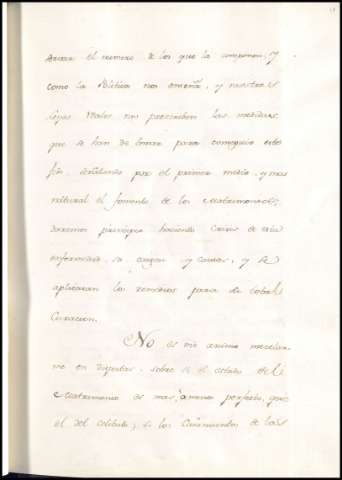 el numero de los que la componen; y
como la Politica nos enseña, y nuestras
Leyes Reales nos prescriben las medidas,
que se han de tomar para conseguir este
fin, señalando por el primer medio, y mas
natural el fomento de los Matrimonios;
daremos principio haciendo de esta
enfermedad, su origen y causas, y se
aplicaran los remedios para
Curacion.
No es mi animo
me en disputas sobre si el estado de
Matrimonio es mas, ò menos perfecto, que
el del celibato; si los de las